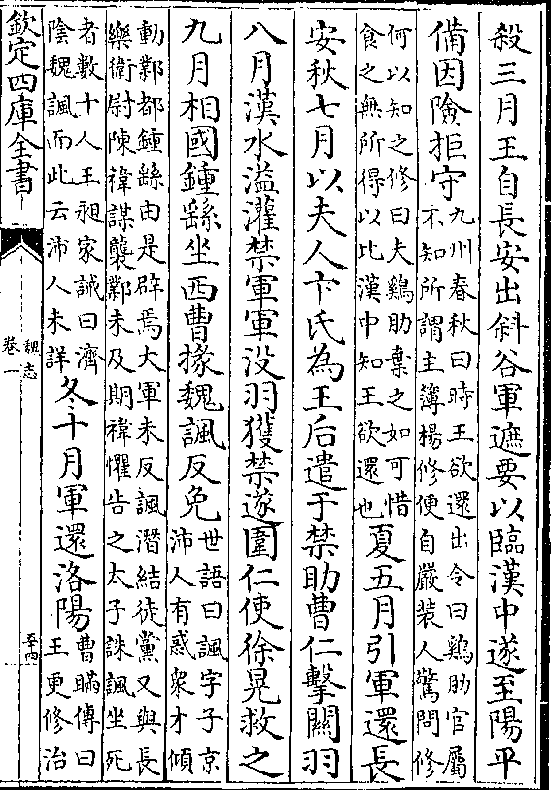 殺三月王自長安出斜谷軍遮要以臨漢中遂至陽平
備因險拒守九州春秋曰時王欲還出令曰鷄肋官屬
不知所謂主簿楊修便自嚴装人驚問修
何以知之修曰夫鷄肋棄之如可惜
食之無所得以比漢中知王欲還也夏五月引軍還長
安秋七月以夫人卞氏為王后遣于禁助曹仁擊關羽
八月漢水溢灌禁軍軍没羽獲禁遂圍仁使徐晃救之
九月相國鍾繇坐西曹掾魏諷反免世語曰諷字子京
沛人有惑衆才傾
動鄴都鍾繇由是辟焉大軍未反諷潛結徒黨又與長
樂衛尉陳禕謀襲鄴未及期禕懼告之太子誅諷坐死
者數十人王昶家誡曰濟
陰魏諷而此云沛人未詳冬十月軍還洛陽曹瞞傳曰
王更修治
欽定四庫全書
魏志
卷一
五十四